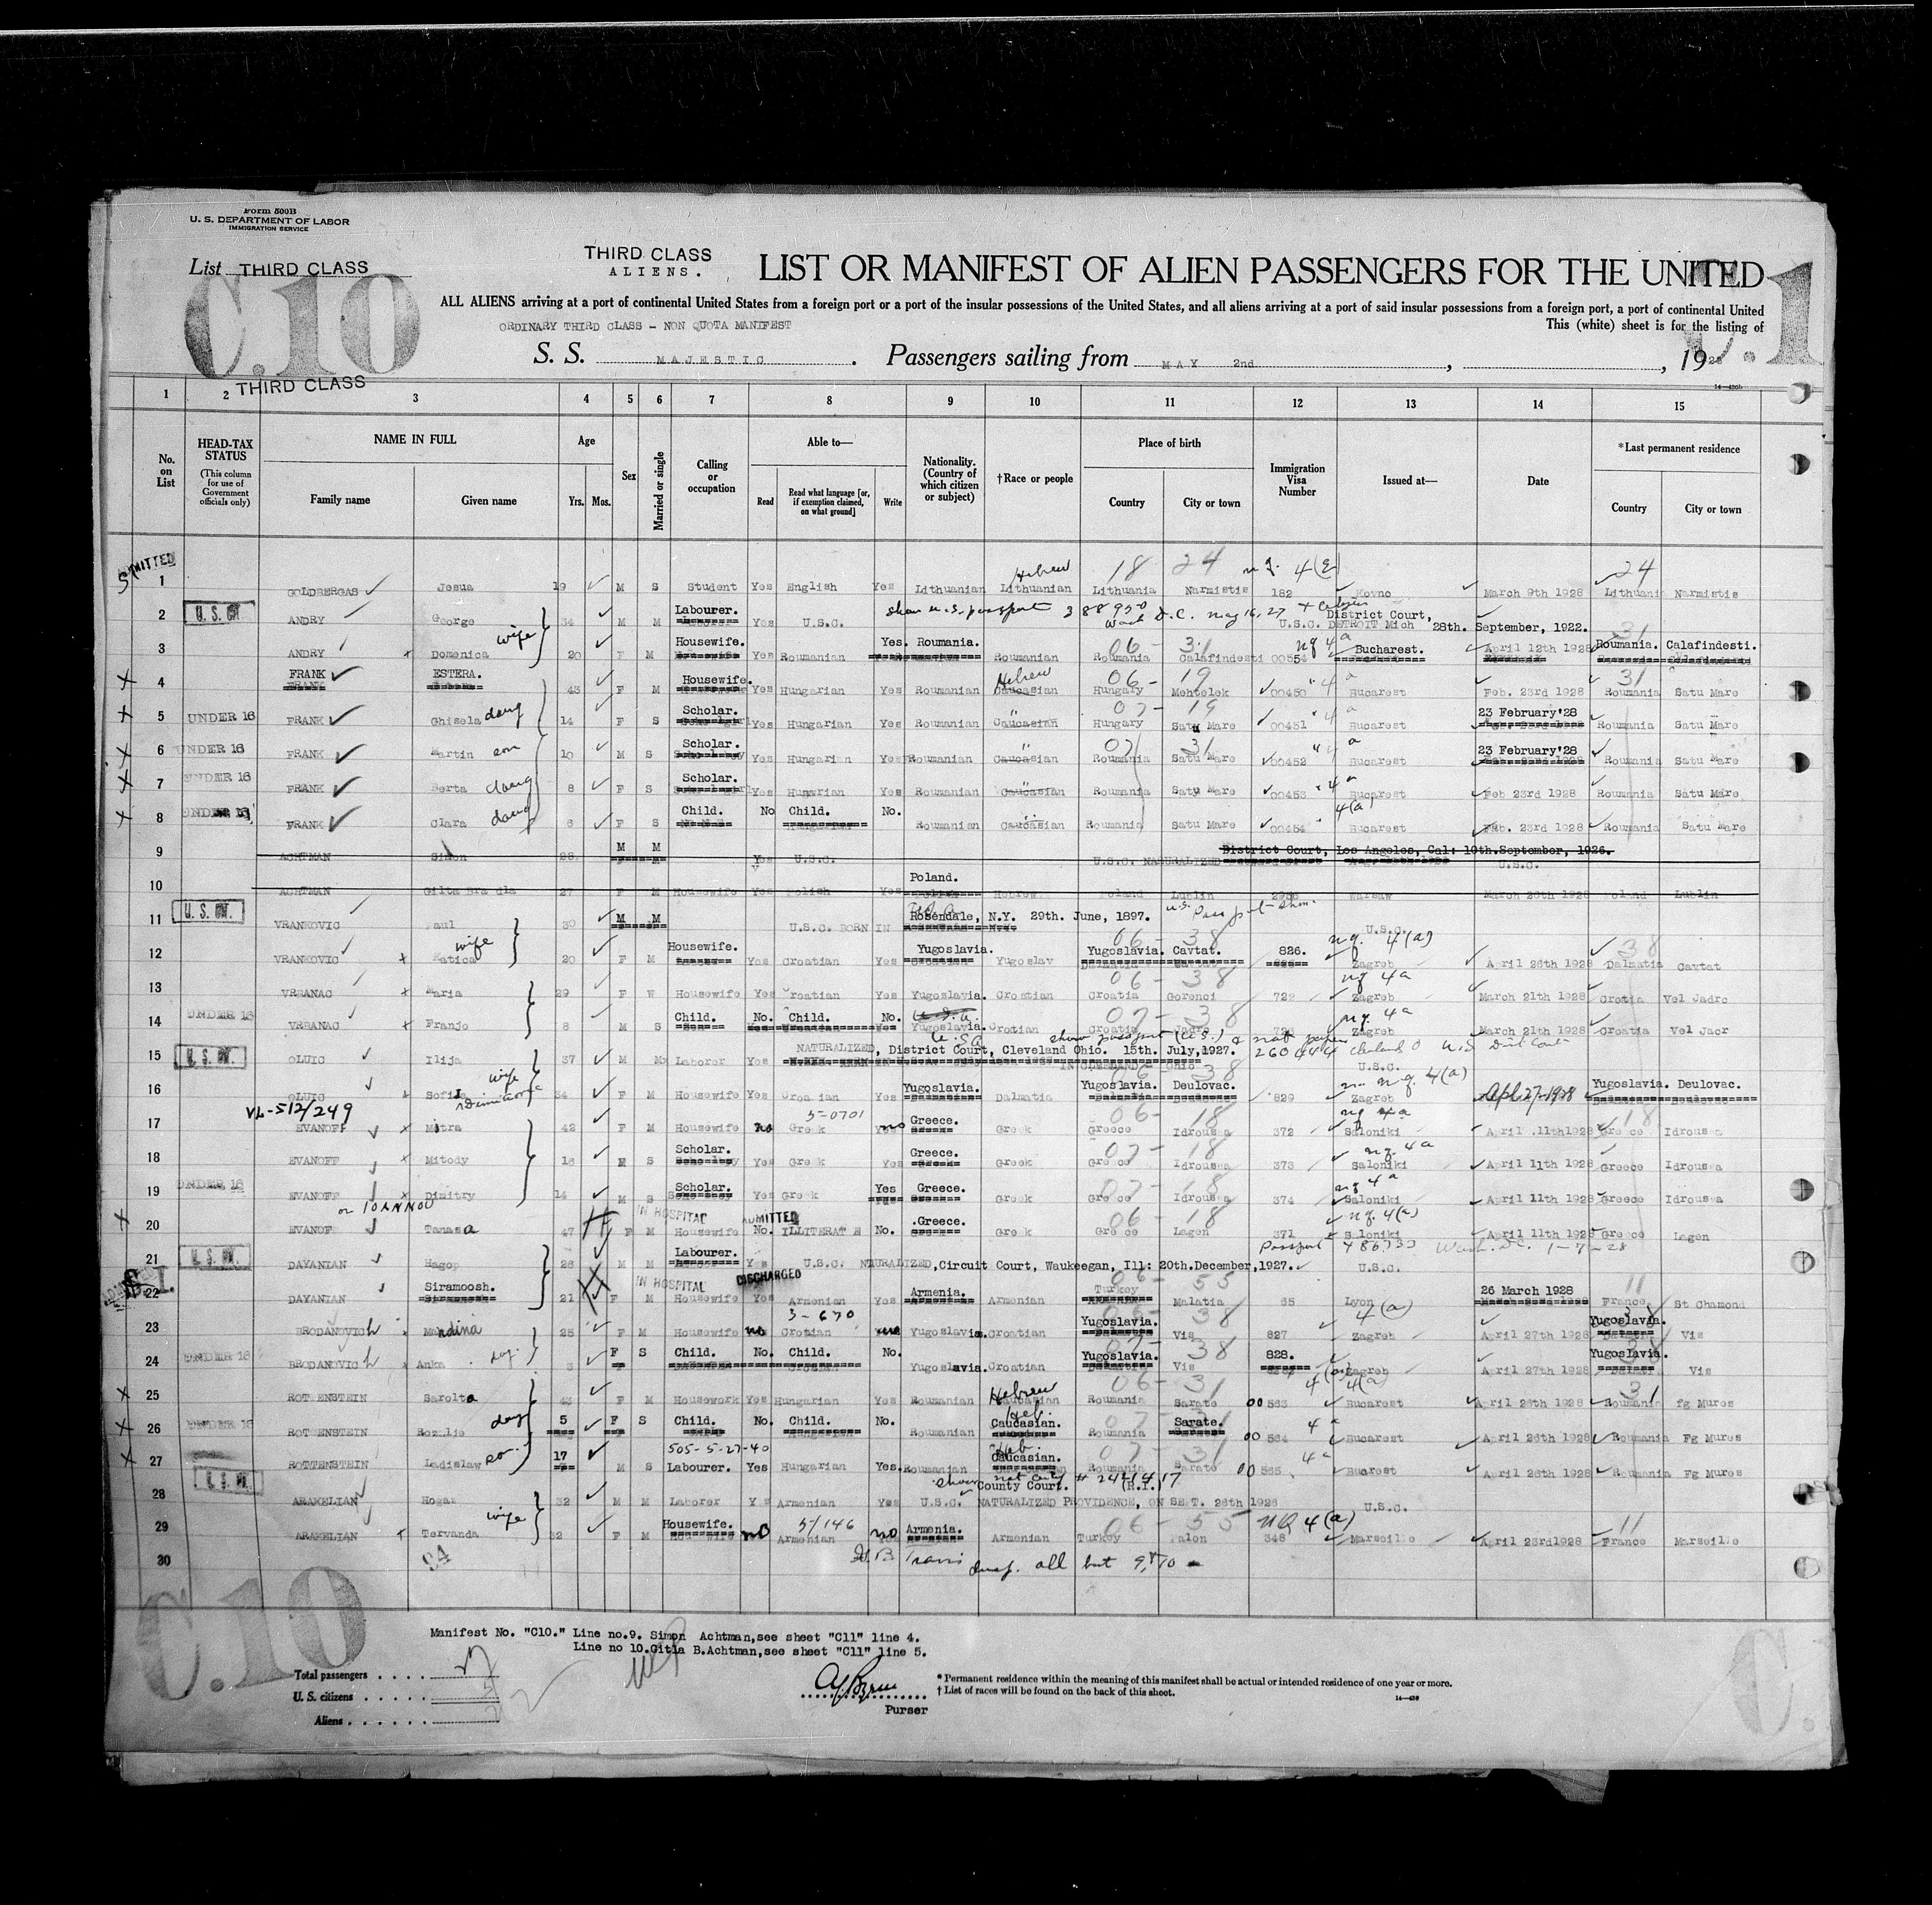 Form 500B
U. S. DEPARTMENT OF LABOR
IMMIGRATION SERVICE
List THIRD CLASS
THIRD CLASS
ALIENS.
LIST OR MANIFEST OF ALIEN PASSENGERS FOR THE UNITED
C.10
C.1
ALL ALIENS arriving at a port of continental United States from a foreign port or a port of the insular possessions of the United States, and all aliens arriving at a port of said insular possessions from a foreign port, a port of continental United
ORDINARY THIRD CLASS - NON QUOTA MANIFEST
This (white) sheet is for the listing of
S. S. MAJESTIC. Passengers sailing from MAY 2nd, , 1928
THIRD CLASS
1 2 3 4 5 6 7 8 9 10 11 12 13 14 15
No. on List
HEAD-TAX STATUS (This column for use of Government officials only)
NAME IN FULL
Family name
Given name
Age
Yrs. Mos.
Sex
Married or single
Calling or occupation
Able to—
Read
Read what language [or, if exemption claimed, on what ground]
Write
Nationality. (Country of which citizen or subject)
†Race or people
Place of birth
Country
City or town
Immigration Visa Number
Issued at—
Date
*Last permanent residence
Country
City or town
ADMITTED
Hebrew 18 24 n.q. 4(E) 24
1 GOLDBERGAS Jesua 19 M S Student Yes English Yes Lithuanian Lithuanian Lithuania Narmistis 182 Kovno March 9th 1928 Lithuania Narmistis
2 U. S. C. ANDRY George 34 M M Labourer. Yes U.S.C. show u.s. passport 388950 Wash D.C. May 16, 27 U.S.C. District Court, DETROIT Mich 28th. September, 1922.
3 ANDRY Domenica wife 20 F M Housewife. Yes Roumanian Yes. Roumania. Roumanian Roumania Calafindesti 00554 nq 4a Bucharest. April 12th 1928 Roumania. Calafindesti.
4 FRANK ESTERA. 43 F M Housewife. Yes Hungarian Yes Roumanian Hebrew Caucasian Hungary Mehtelek 00450 4a Bucarest Feb. 23rd 1928 Roumania Satu Mare
5 UNDER 16 FRANK Ghisela daug 14 F S Scholar. Yes Hungarian Yes Roumanian Caucasian Hungary Satu Mare 00451 4a Bucarest 23 February'28 Roumania Satu Mare
6 UNDER 16 FRANK Martin son 10 M S Scholar. Yes Hungarian Yes Roumanian Caucasian Roumania Satu Mare 00452 4a Bucarest 23 February'28 Roumania Satu Mare
7 UNDER 16 FRANK Berta daug 8 F S Scholar. Yes Hungarian Yes Roumanian Caucasian Roumania Satu Mare 00453 4a Bucarest Feb 23rd 1928 Roumania Satu Mare
8 UNDER 16 FRANK Clara daug 6 F S Child. No Child. No. Roumanian Caucasian Roumania Satu Mare 00454 4(a) Bucarest Feb. 23rd 1928 Roumania Satu Mare
9 ACHTMAN Simon 28 M M Yes U.S.C. U.S.C. NATURALIZED District Court, Los Angeles, Cal: 10th.September, 1926. U.S.C.
10 ACHTMAN Gitla Bra dla 27 F M Housewife Yes Polish Yes Poland. Hebrew Poland Lublin Warsaw March 26th 1928 Poland Lublin
11 U. S. C. VRANKOVIC Paul 30 M M U.S.C. BORN IN Rosendale, N.Y. 29th. June, 1897. U.S. Passport Shown U.S.C.
12 VRANKOVIC Matica wife 20 F M Housewife. Yes Croatian Yes Yugoslavia. Yugoslav Yugoslavia. Cavtat. 826. n.q. 4(a) Zagreb April 26th 1928 Dalmatia Cavtat
13 VRBANAC Maria 29 F W Housewife Yes Croatian Yes Yugoslavia. Croatian Croatia Gorenci 722 nq 4a Zagreb March 21th 1928 Croatia Vel Jadro
14 UNDER 16 VRBANAC Franjo 8 M S Child. No. Child. No. Yugoslavia. Croatian Croatia nq. 4a Zagreb March 21th 1928 Croatia Vel Jacr
15 U. S. C. OLUIC Ilija 37 M M Laborer Yes NATURALIZED, District Court, Cleveland Ohio. 15th. July, 1927. U.S.A. show passport (U.S.) & nat papers 260444 Cleveland O U.S Dist Court U.S.C.
16 OLUIC Sofia wife 34 F M Housewife Yes Croatian Yes Yugoslavia. Dalmatia Yugoslavia. Deulovac. 829 n.q. 4(a) Zagreb Apl 27-1928 Yugoslavia. Deulovac.
VL-512/249 5-0701
17 EVANOFF Mitra 42 F M Housewife no Greek no Greece. Greek Greece Idroussa 372 nq 4a Saloniki April 11th 1928 Greece Idroussa
18 EVANOFF Mitody 18 M S Scholar. Yes Greek Yes Greece. Greek Greece Idroussa 373 nq. 4a Saloniki April 11th 1928 Greece Idroussa
19 UNDER 16 EVANOFF Dimitry 14 M S Scholar. Yes Greek Yes Greece. Greek Greece Idroussa 374 nq 4a Saloniki April 11th 1928 Greece Idroussa
or IOANNOU IN HOSPITAL ADMITTED
20 EVANOFF Tanasa 47 F M Housewife No. ILLITERATE No. Greece. Greek Greece Lagen 371 nq. 4(a) Saloniki April 11th 1928 Greece Lagen
21 U. S. C. DAYANIAN Hagop 28 M M Labourer. Yes U.S.C. NATURALIZED, Circuit Court, Waukeegan, Ill: 20th.December, 1927. Passport Wash. D.C. 1-7-28 U.S.C.
S.I. IN HOSPITAL DISCHARGED
22 DAYANIAN Siramoosh. 21 F M Housewife Yes Armenian Yes Armenia. Armenian Turkey Malatia 65 Lyon 26 March 1928 France St Chamond
3-670
23 BRODANOVICH Mandina 25 F M Housewife no Croatian no Yugoslavia. Croatian Yugoslavia. Vis 827 4(a) Zagreb April 27th 1928 Yugoslavia. Vis
24 UNDER 16 BRODANOVICH Anka 3 F S Child. No. Child. No. Yugoslavia. Croatian Yugoslavia. Vis 828. Zagreb April 27th 1928 Yugoslavia. Vis
25 ROTTENSTEIN Sarolta 43 F M Housework Yes Hungarian Yes Roumanian Hebrew Caucasian Roumania Sarate 00563 4(a) Bucarest April 26th 1928 Roumania fg Mures
26 UNDER 16 ROTTENSTEIN Rozalie daug 5 F S Child. No. Child. No. Roumanian Heb. Caucasian. Roumania Sarate. 00564 4a Bucarest April 26th 1928 Roumania Fg Mures
505-5-27-40
27 ROTTENSTEIN Ladislaw son 17 M S Labourer. Yes Hungarian Yes. Roumanian Heb. Caucasian. Roumania Sarate 00565 4a Bucarest April 26th 1928 Roumania Fg Mures
28 U. S. C. ARAKELIAN Hogas 32 M M Laborer Yes Armenian Yes U.S.C. County Court. (R.I.) NATURALIZED PROVIDENCE, ON SEPT. 26th 1926 U.S.C.
29 ARAKELIAN Tervanda wife 32 F M Housewife. no 5/146 Armenian no Armenia. Armenian Turkey Palon 348 NQ 4(a) Marseille April 23rd1928 France Marseille
30
Insp. all but 9, & 10
C.10
Manifest No. "C10." Line no.9. Simon Achtman,see sheet "C11" line 4.
Line no 10.Gitla B.Achtman,see sheet "C11" line 5.
Total passengers
U. S. citizens
Aliens
Purser
* Permanent residence within the meaning of this manifest shall be actual or intended residence of one year or more.
† List of races will be found on the back of this sheet.